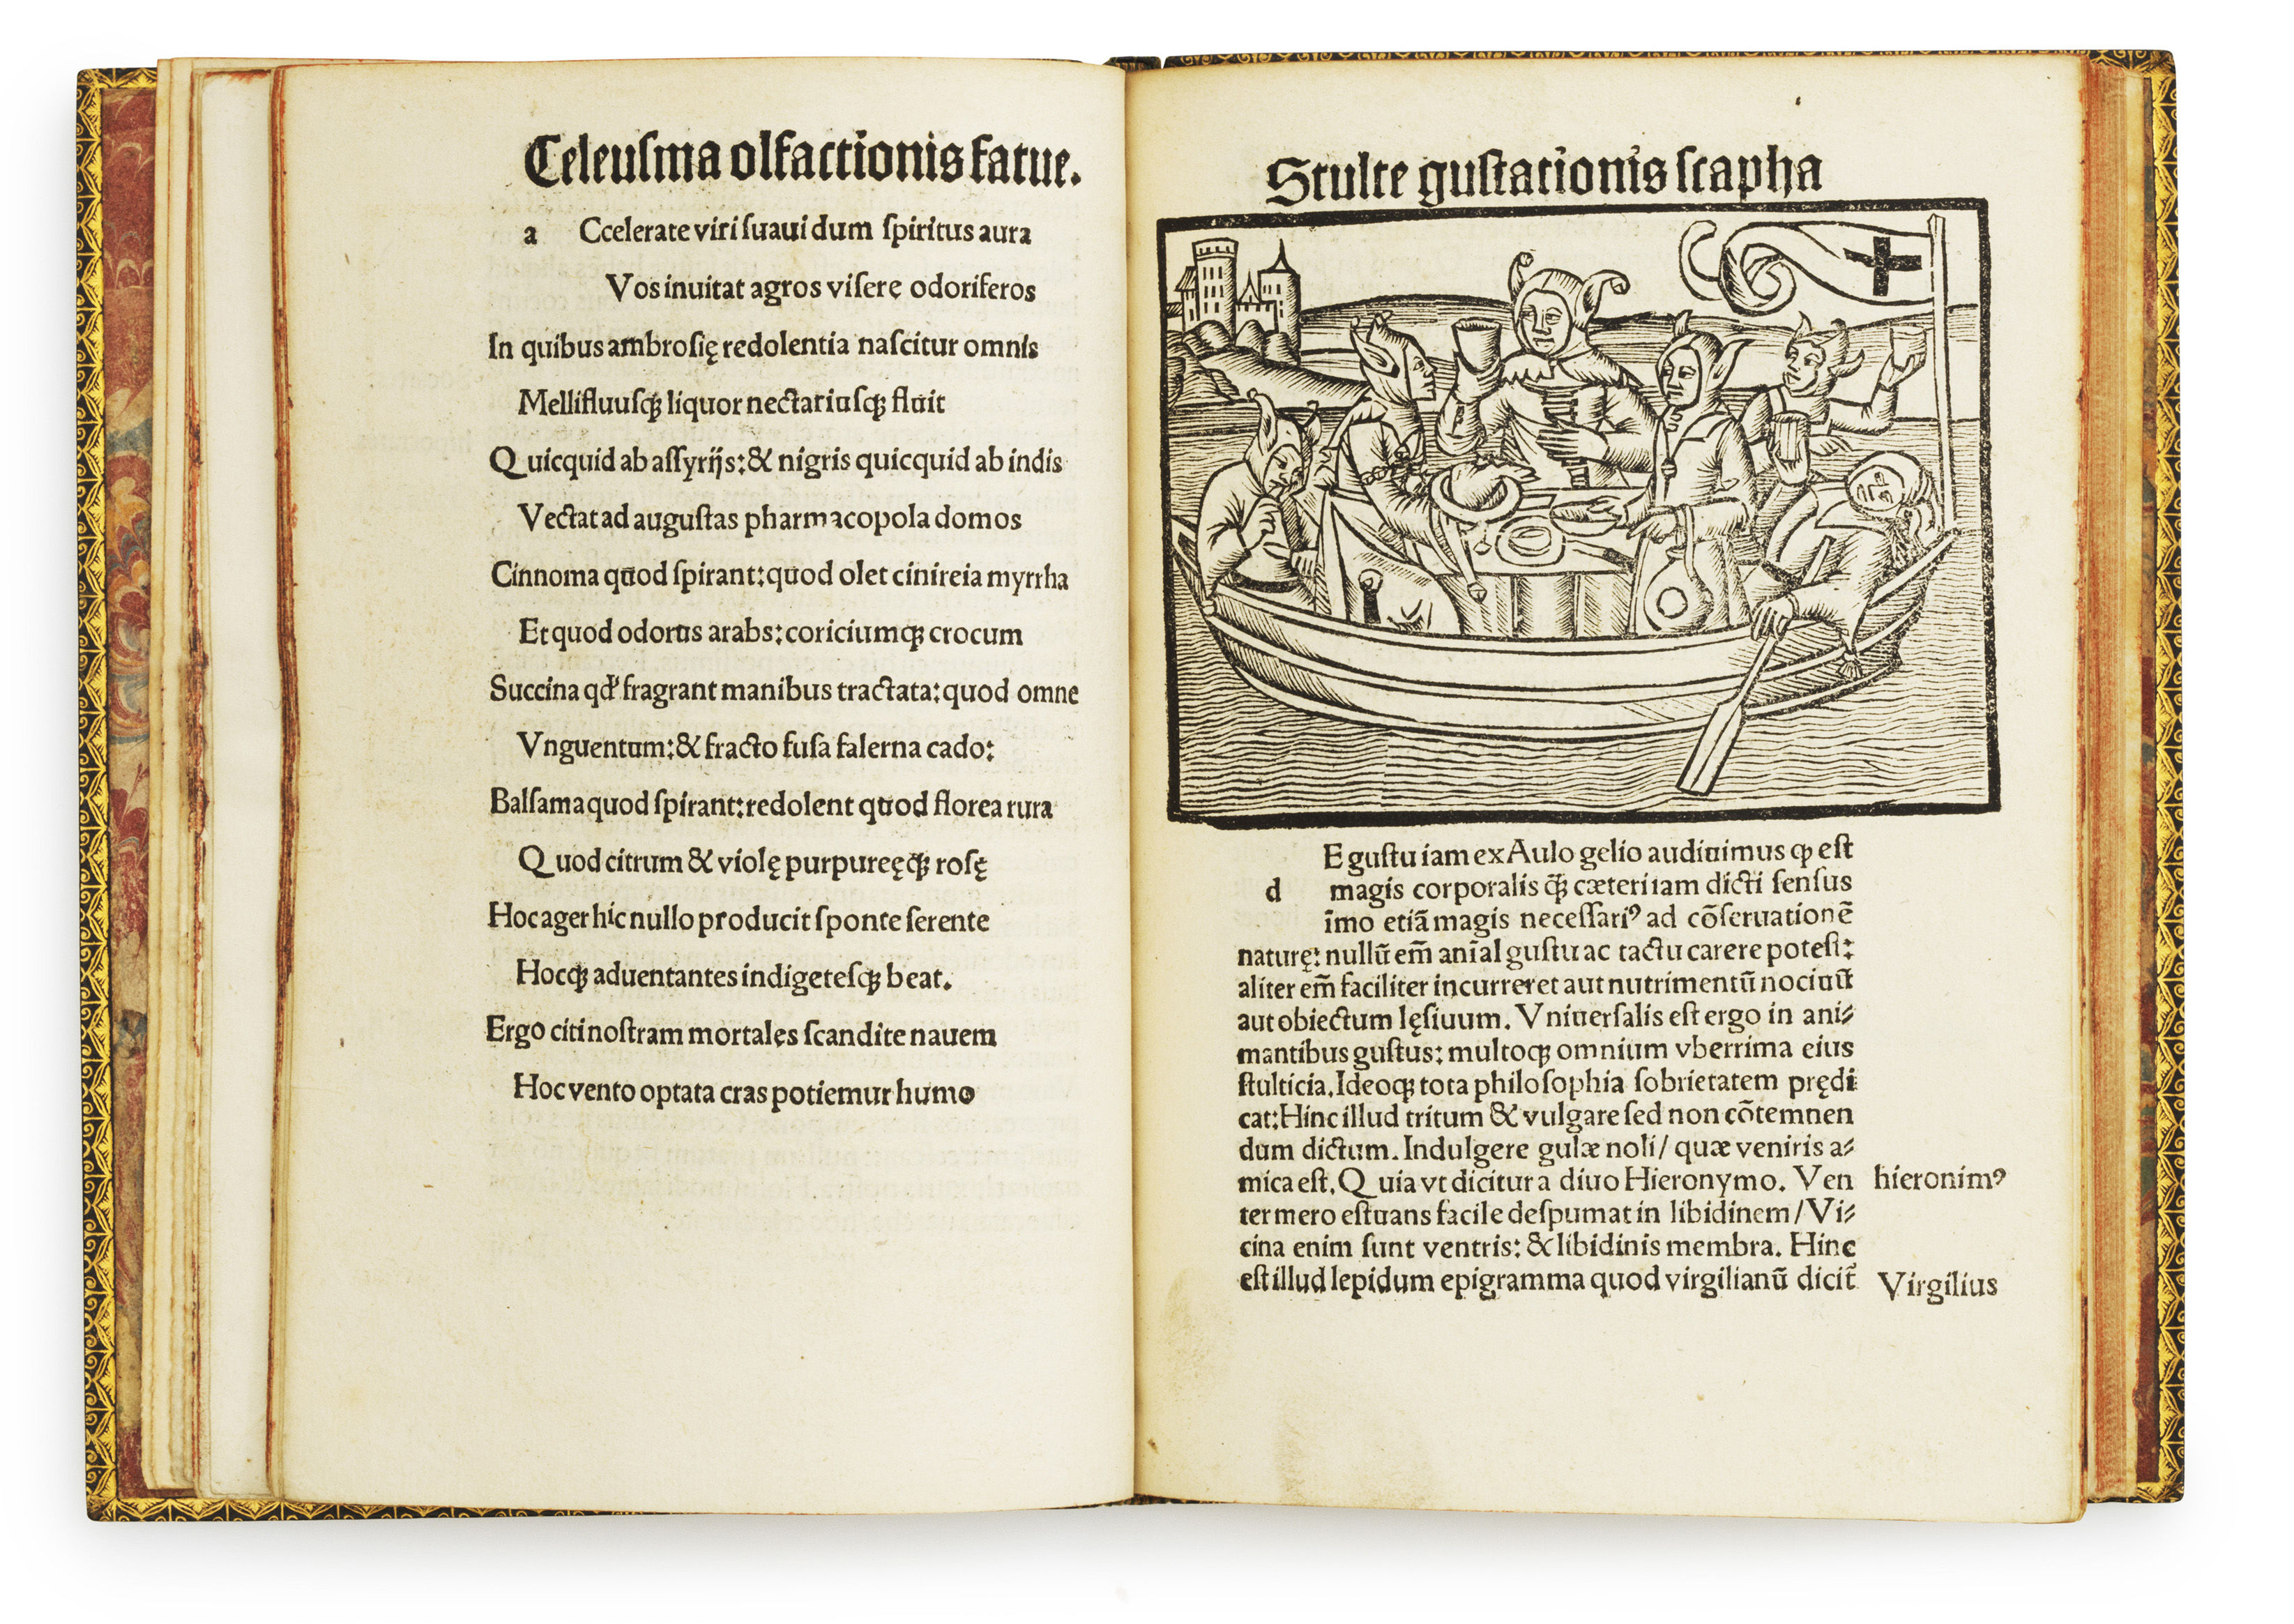 Celeuſma olfactionis fatue.
a Ccelerate viri ſuaui dum ſpiritus aura
Vos inuitat agros viſere odoriferos
In quibus ambroſię redolentia naſcitur omnis
Mellifluuſqꝫ liquor nectariuſqꝫ fluit
Quicquid ab aſſyrijs: & nigris quicquid ab indis
Vectat ad auguſtas pharmacopola domos
Cinnoma quod ſpirant: quod olet cinireia myrrha
Et quod odorus arabs: coriciumqꝫ crocum
Succina qd' fragrant manibus tractata: quod omne
Vnguentum: & fracto fuſa falerna cado:
Balſama quod ſpirant: redolent quod florea rura
Quod citrum & violę purpureęqꝫ roſę
Hoc ager hic nullo producit ſponte ſerente
Hocqꝫ aduentantes indigeteſqꝫ beat.
Ergo citi noſtram mortales ſcandite nauem
Hoc vento optata cras potiemur humo
Stulte guſtationis ſcapha
E guſtu iam ex Aulo gelio audiuimus ꝙ eſt
d magis corporalis qͣꝫ cæteri iam dicti ſenſus
īmo etiā magis neceſſariꝰ ad cōſeruationē
naturę: nullū em̄ anīal guſtu ac tactu carere poteſt:
aliter em̄ faciliter incurreret aut nutrimentū nociuū
aut obiectum lęſiuum. Vniuerſalis eſt ergo in ani⸗
mantibus guſtus: multoqꝫ omnium vberrima eius
ſtulticia. Ideoqꝫ tota philoſophia ſobrietatem prędi
cat: Hinc illud tritum & vulgare ſed non cōtemnen
dum dictum. Indulgere gulæ noli/ quæ veniris a⸗
mica eſt. Quia vt dicitur a diuo Hieronymo. Ven hieronimꝰ
ter mero eſtuans facile deſpumat in libidinem/ Vi⸗
cina enim ſunt ventris: & libidinis membra. Hinc
eſt illud lepidum epigramma quod virgilianū dicit̄ Virgilius